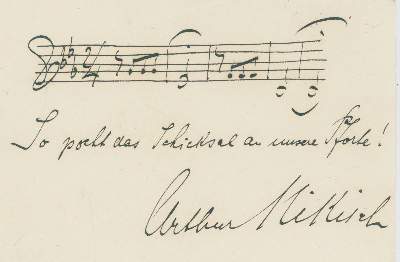 2/4
So pocht das Schicksal an unsere Pforte!
Arthur Nikisch